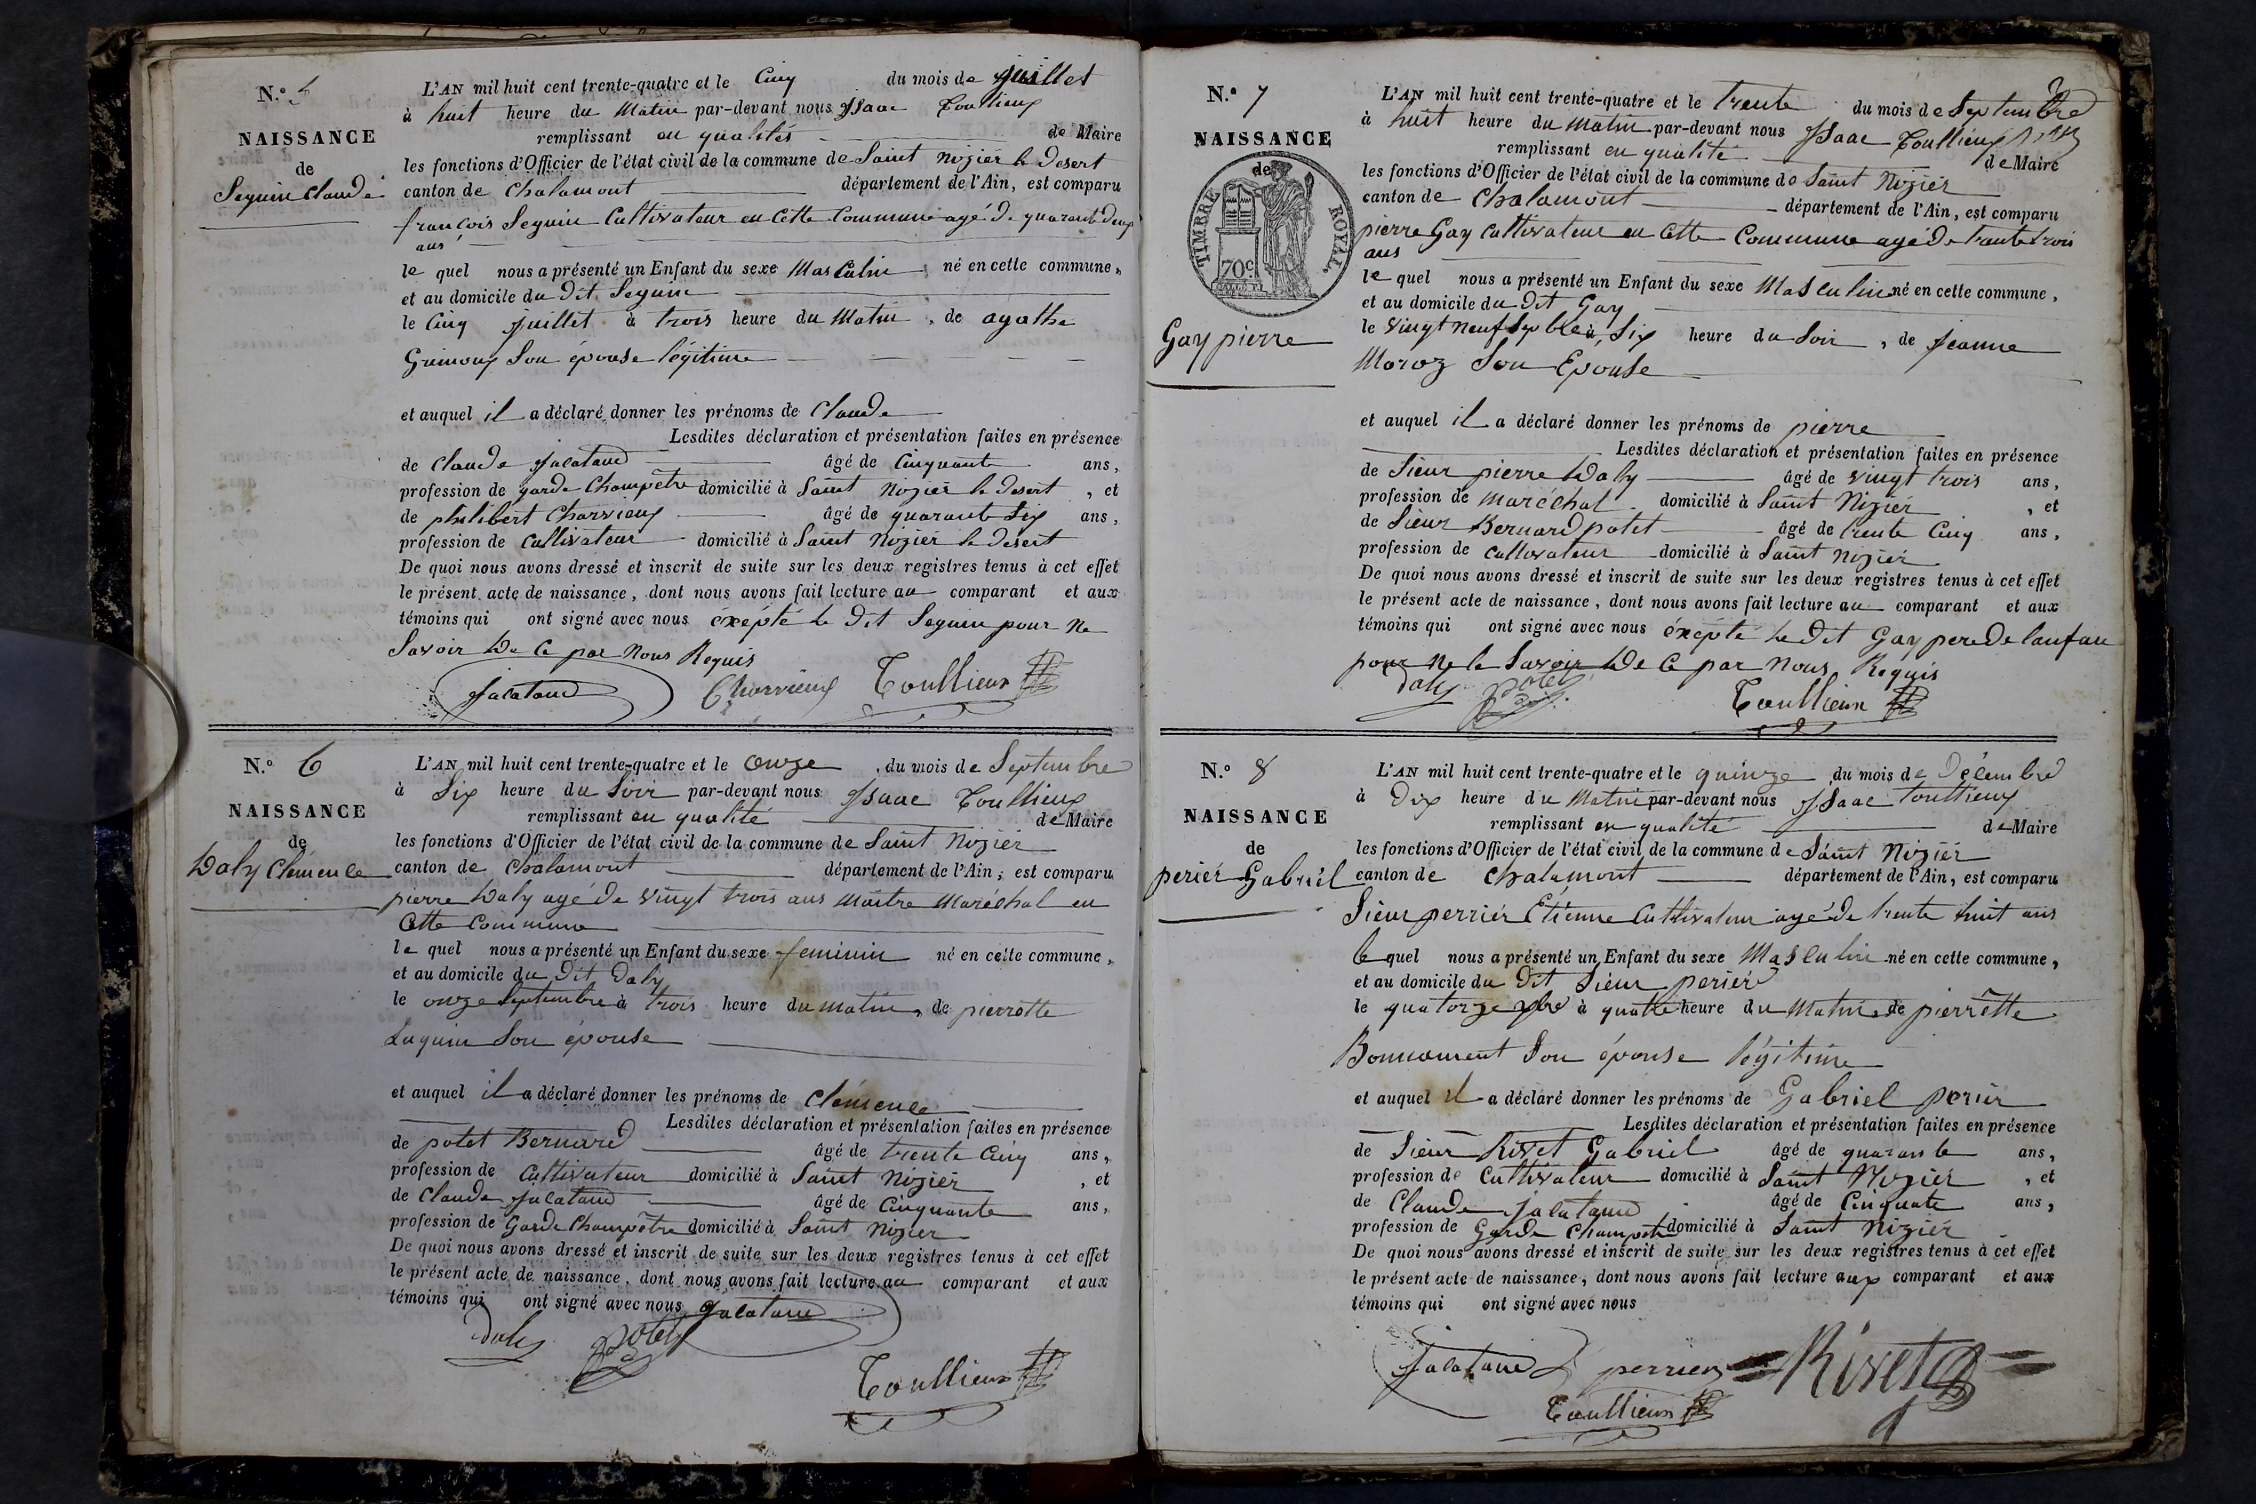 N.º 5
NAISSANCE
de
Seguin Claude
L'AN mil huit cent trente-quatre et le Cinq du mois de juillet
à huit heure du Matin par-devant nous Isaac Toullieux
remplissant en qualités de Maire
les fonctions d'Officier de l'état civil de la commune de Saint Nizier le Desert
canton de Chalamont département de l'Ain, est comparu
françois Seguin Cultivateur en Cette Commune agé de quarante deux
ans
le quel nous a présenté un Enfant du sexe Masculin né en cette commune,
et au domicile du Dit Seguin
le Cinq juillet à trois heure du Matin, de agathe
Guimoux Son épouse légitime
et auquel il a déclaré donner les prénoms de Claude
Lesdites déclaration et présentation faites en présence
de Claude Jalataud âgé de Cinquante ans,
profession de garde Champêtre domicilié à Saint Nizier le Desert, et
de philibert Charvieux âgé de quarante Six ans,
profession de Cultivateur domicilié à Saint Nizier le Desert
De quoi nous avons dressé et inscrit de suite sur les deux registres tenus à cet effet
le présent acte de naissance, dont nous avons fait lecture au comparant et aux
témoins qui ont signé avec nous éxépté le Dit Seguin pour Ne
Savoir De Ce par Nous Requis
Jalataud Charvieux Toullieux
N.º 6
NAISSANCE
de
Daly Clémence
L'AN mil huit cent trente-quatre et le onze du mois de Septembre
à Six heure du Soir par-devant nous Isaac Toullieux
remplissant en qualité de Maire
les fonctions d'Officier de l'état civil de la commune de Saint Nizier
canton de Chalamont département de l'Ain, est comparu
pierre Daly agé de vingt trois ans Maître Maréchal en
Cette Commune
le quel nous a présenté un Enfant du sexe feminin né en cette commune,
et au domicile du Dit Daly
le onze Septembre à trois heure du matin, de pierrette
Luquin Son épouse
et auquel il a déclaré donner les prénoms de Clémence
Lesdites déclaration et présentation faites en présence
de potet Bernard âgé de trente Cinq ans,
profession de Cultivateur domicilié à Saint Nizier, et
de Claude Jalataud âgé de Cinquante ans,
profession de Garde Champêtre domicilié à Saint Nizier
De quoi nous avons dressé et inscrit de suite sur les deux registres tenus à cet effet
le présent acte de naissance, dont nous avons fait lecture au comparant et aux
témoins qui ont signé avec nous Jalataud
Daly potet
Toullieux
N.º 7
NAISSANCE
de
TIMBRE ROYAL.
70c
Gay pierre
L'AN mil huit cent trente-quatre et le trente du mois de Septembre
à huit heure du Matin par-devant nous Isaac Toullieux
remplissant en qualité de Maire
les fonctions d'Officier de l'état civil de la commune de Saint Nizier
canton de Chalamont département de l'Ain, est comparu
pierre Gay Cultivateur en Cette Commune agé de trante trois
ans
le quel nous a présenté un Enfant du sexe Masculin né en cette commune,
et au domicile du Dit Gay
le vingt neuf Sepbre à Six heure du Soir, de Jeanne
Moroz Son Epouse
et auquel il a déclaré donner les prénoms de pierre
Lesdites déclaration et présentation faites en présence
de Sieur pierre Daly âgé de vingt trois ans,
profession de Maréchal domicilié à Saint Nizier, et
de Sieur Bernard potet âgé de trente Cinq ans,
profession de Cultivateur domicilié à Saint Nizier
De quoi nous avons dressé et inscrit de suite sur les deux registres tenus à cet effet
le présent acte de naissance, dont nous avons fait lecture au comparant et aux
témoins qui ont signé avec nous éxépté le Dit Gay pere De lanfan
pour Ne le Savoir De Ce par Nous Requis
Daly potet Toullieux
N.º 8
NAISSANCE
de
periér Gabriél
L'AN mil huit cent trente-quatre et le quinze du mois de Décembre
à Dix heure du Matin par-devant nous Isaac Toullieux
remplissant en qualité de Maire
les fonctions d'Officier de l'état civil de la commune de Saint Nizier
canton de Chalamont département de l'Ain, est comparu
Sieur perriér Etiénne Cultivateur agé de trente huit ans
le quel nous a présenté un Enfant du sexe Masculin né en cette commune,
et au domicile du Dit Sieur periér
le quatorze Xbre à quatre heure du Matin de pierrette
Bonnament Son épouse légitime
et auquel il a déclaré donner les prénoms de Gabriel perier
Lesdites déclaration et présentation faites en présence
de Sieur Rivet Gabriel âgé de quarante ans,
profession de Cultivateur domicilié à Saint Nizier, et
de Claude Jalataud âgé de Cinquate ans,
profession de Garde Champetre domicilié à Saint Nizier
De quoi nous avons dressé et inscrit de suite sur les deux registres tenus à cet effet
le présent acte de naissance, dont nous avons fait lecture aux comparant et aux
témoins qui ont signé avec nous
Jalataud perrier Rivet
Toullieux